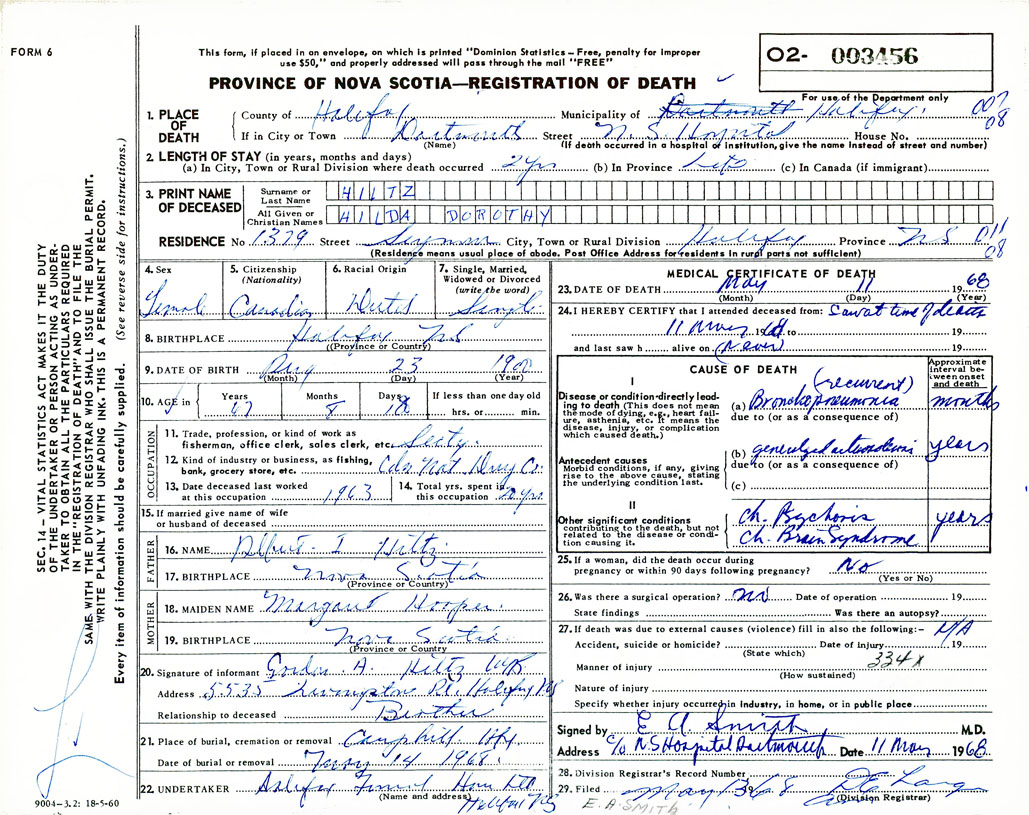 FORM 6
This form, if placed in an envelope, on which is printed "Dominion Statistics – Free, penalty for improper
use $50," and properly addressed will pass through the mail "FREE"
PROVINCE OF NOVA SCOTIA—REGISTRATION OF DEATH
O2- 003456
For use of the Department only
007
08
1. PLACE OF DEATH
County of Halifax Municipality of Dartmouth Halifax.
If in City or Town Dartmouth Street N. S. Hospital House No.
(Name) (If death occurred in a hospital or institution, give the name instead of street and number)
2. LENGTH OF STAY (in years, months and days)
(a) In City, Town or Rural Division where death occurred 2 yrs (b) In Province Life (c) In Canada (if immigrant)
3. PRINT NAME OF DECEASED
Surname or Last Name HILTZ
All Given or Christian Names HILDA DOROTHY
RESIDENCE No. 1379 Street Seymour City, Town or Rural Division Halifax Province NS
011
08
(Residence means usual place of abode. Post Office Address for residents in rural parts not sufficient)
4. Sex Female
5. Citizenship (Nationality) Canadian
6. Racial Origin Dutch
7. Single, Married, Widowed or Divorced (write the word) Single
8. BIRTHPLACE Halifax NS
(Province or Country)
9. DATE OF BIRTH 23
(Month) (Day) (Year)
10. AGE in Years 67 Months 8 Days 18 If less than one day old hrs. or min.
OCCUPATION
11. Trade, profession, or kind of work as fisherman, office clerk, sales clerk, etc.
12. Kind of industry or business, as fishing, bank, grocery store, etc. Cdn Nat
13. Date deceased last worked at this occupation 1963
14. Total yrs. spent in this occupation yrs
15. If married give name of wife or husband of deceased
FATHER
16. NAME Albert I Hiltz
17. BIRTHPLACE Nova Scotia
(Province or Country)
MOTHER
18. MAIDEN NAME Margaret Hooper.
19. BIRTHPLACE Nova Scotia
(Province or Country
20. Signature of informant Gordon A. Hiltz
Address 5535 Livingstone Pl. Halifax NS
Relationship to deceased Brother
21. Place of burial, cremation or removal Camphill Hfx
Date of burial or removal May 14 1968.
22. UNDERTAKER Halifax Funeral Home Ltd
(Name and address) Halifax NS
9004—3.2: 18-5-60
SEC. 14 – VITAL STATISTICS ACT MAKES IT THE DUTY
OF THE UNDERTAKER OR PERSON ACTING AS UNDER-
TAKER TO OBTAIN ALL THE PARTICULARS REQUIRED
IN THE "REGISTRATION OF DEATH" AND TO FILE THE
SAME WITH THE DIVISION REGISTRAR WHO SHALL ISSUE THE BURIAL PERMIT.
WRITE PLAINLY WITH UNFADING INK. THIS IS A PERMANENT RECORD.
Every item of information should be carefully supplied. (See reverse side for instructions.)
MEDICAL CERTIFICATE OF DEATH
23. DATE OF DEATH May 11 1968
(Month) (Day) (Year)
24. I HEREBY CERTIFY that I attended deceased from: Saw at time of death
11 May 1968 to 19
and last saw h alive on (Never) 19
CAUSE OF DEATH
Approximate interval between onset and death
I
Disease or condition directly leading to death (This does not mean the mode of dying, e.g., heart failure, asthenia, etc. It means the disease, injury, or complication which caused death.)
(recurrent)
(a) Bronchopneumonia months
due to (or as a consequence of)
Antecedent causes
Morbid conditions, if any, giving rise to the above cause, stating the underlying condition last.
(b) generalyzed arteriosclerosis years
due to (or as a consequence of)
(c)
II
Other significant conditions
contributing to the death, but not related to the disease or condition causing it.
Ch. Psychosis years
Ch. Brain Syndrome
25. If a woman, did the death occur during pregnancy or within 90 days following pregnancy? No
(Yes or No)
26. Was there a surgical operation? No Date of operation 19
State findings Was there an autopsy?
27. If death was due to external causes (violence) fill in also the following:– N/A
Accident, suicide or homicide? Date of injury 19
(State which)
334X
Manner of injury
(How sustained)
Nature of injury
Specify whether injury occurred in industry, in home, or in public place
Signed by E A Smith M.D.
Address c/o N.S Hospital Dartmouth Date 11 May 1968
28. Division Registrar's Record Number
29. Filed May 13 1968
(Division Registrar)
E. A. SMITH